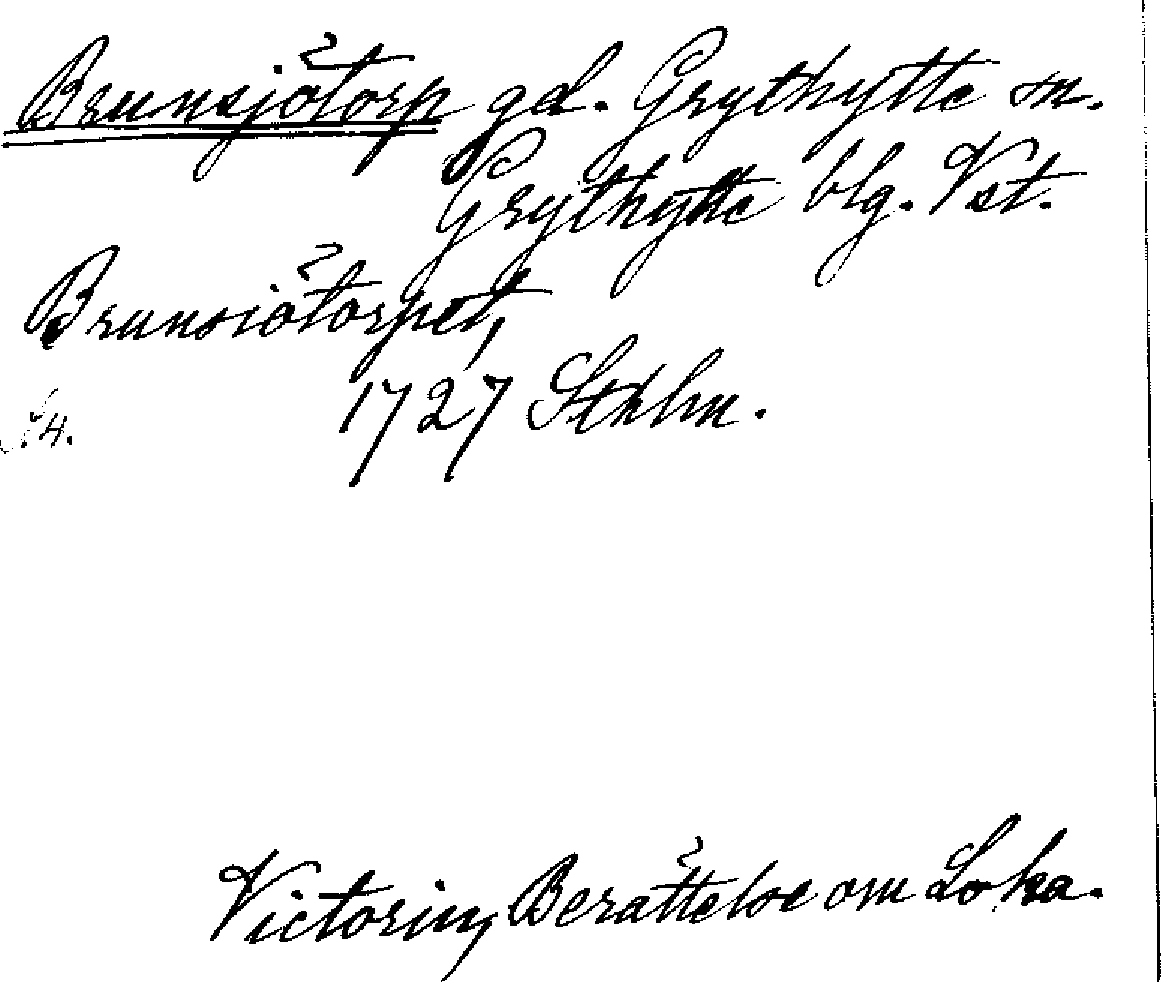 Brunsjötorp gd. Grythytte sn.
Grythytte blg. Vst.
Brunsiötorpet,
1727 Sthlm.
Victorin, Berättelse om Loka.